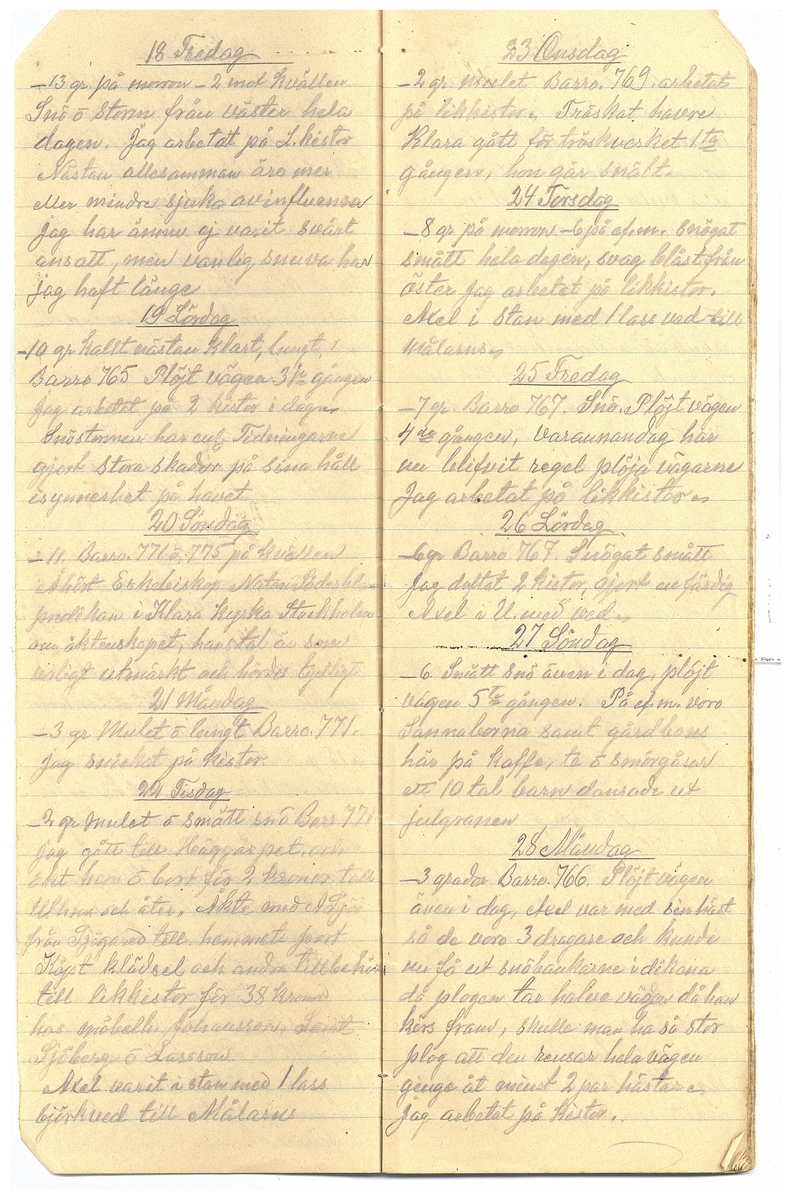 18 Fredag
-13 gr på morron -2 mot kvällen
Snö o Storm från väster hela
dagen. Jag arbetat på L.kistor
Nästan allesamman äro mer
eller mindre sjuka av influensa
jag har ännu ej varit svårt
ansatt, men vanlig snuva har
jag haft länge
19 Lördag
-10 gr kallt nästan klart, lungt,
Barro 765 Plöjt vägen 3je gången
Jag arbetat på 2 kistor i dag
Snöstormen har enl. Tidningarne
gjort stora skador på sina håll
isynnerhet på havet
20 Söndag
-11. Barro. 771 o. 775 på kvällen
Ahört Erkebiskop Natan Söderbl
predikan i Klara kyrka Stockholm
om äktenskapet, hans tal är som
vanligt utmärkt och hördes tydligt
21 Måndag
-3 gr Mulet o lungt Barro. 771.
Jag snickat på kistor
22 Tisdag
-2 gr Mulet o smått snö Barr 771
Jag gått till Häggarpet och
åkt hem o bort för 2 kronor till
och åter. Åkte med
från till hemmets port
Köpt klädsel och andra tillbehör
till likkistor för 38 kronor
hos möbelh. Johansson, Samt
Sjöberg o Larsson
Axel varit i stan med 1 lass
björkved till Målarns
23 Onsdag
-2 gr. mulet Barro. 769. arbetat
på likkistor. Tröskat havre
Klara gått för tröskverket 1ta
gången, hon går snällt.
24 Torsdag
-8 gr på morron -6 på ef.m. Snögat
smått hela dagen, svag blåst från
öster Jag arbetat på likkistor.
Axel i Stan med 1 lass ved till
Målarns
25 Fredag
-7 gr. Barro 767. Snö. Plöjt vägen
4de gången, varannandag har
nu blifvit regel plöja vägarne
Jag arbetat på likkistor
26 Lördag
-6 gr Barro 767. Snögat smått
Jag doftat 2 kistor, gjort en färdig
Axel i U. med ved
27 Söndag
-6. Smått snö även i dag, plöjt
vägen 5te gången. På ef.m. voro
Sannaborna samt gårdbons
här på kaffe, te o smörgåsar
ett 10 tal barn dansade ut
julgranen
28 Måndag
-3 grader Barro. 766. Plöjt vägen
även i dag, Axel var med sin häst
så de voro 3 dragare och kunde
nu få ut snöbankarne i dikena
då plogen tar halva vägen då han
körs fram, skulle man ha så stor
plog att den rensar hela vägen
genge åt minst 2 par hästar
Jag arbetat på kistor.